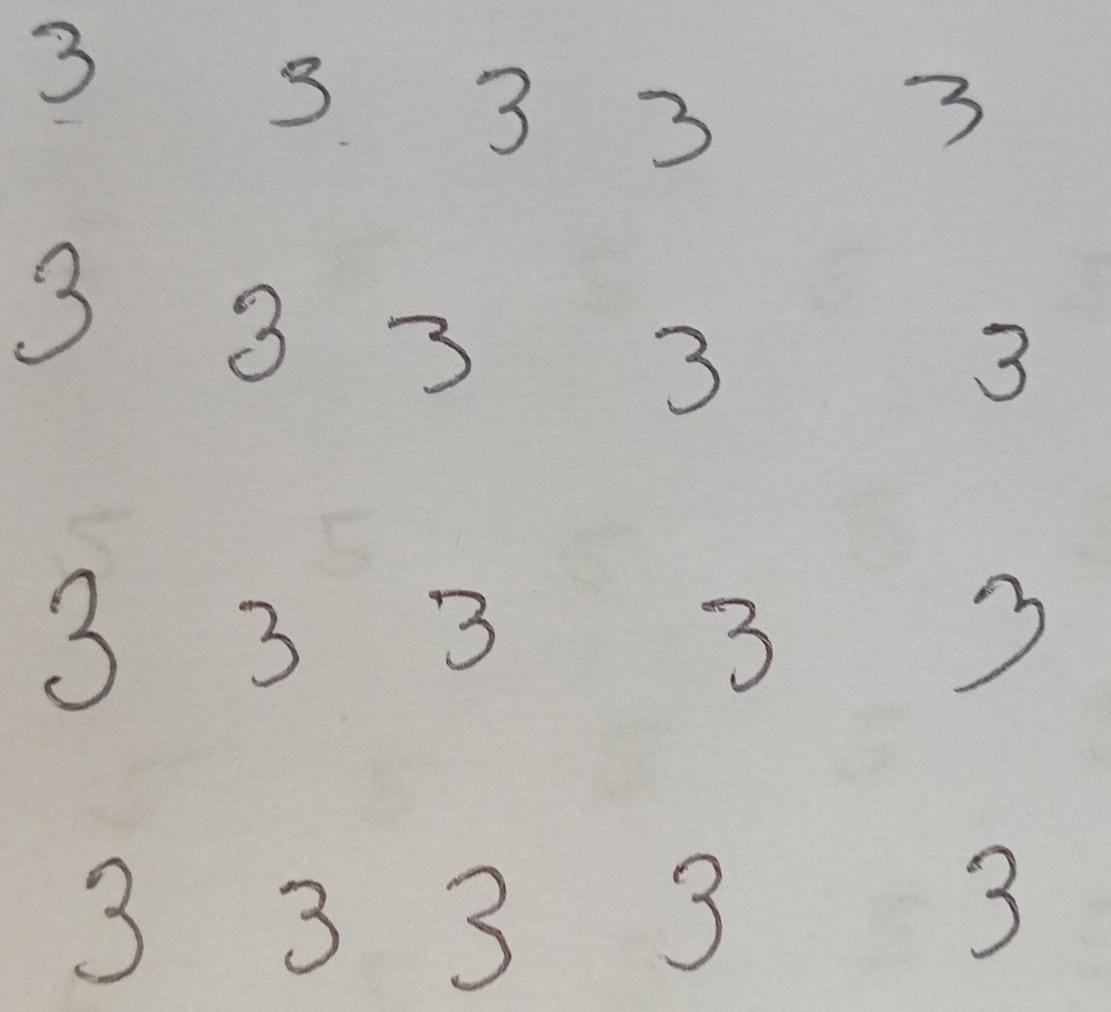 3 3 3 3 3
3 3 3 3 3
3 3 3 3 3
3 3 3 3 3